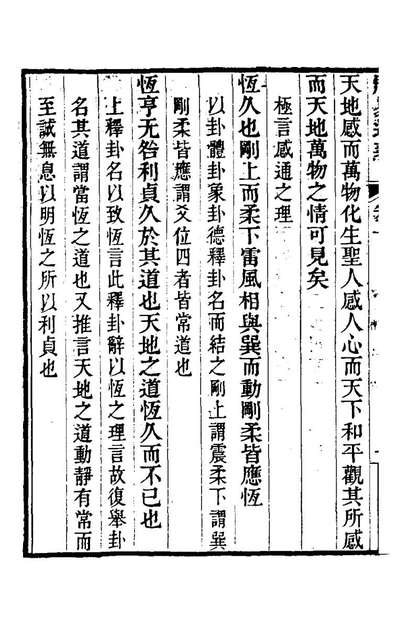 天地感而萬物化生聖人感人心而天下和平觀其所感
而天地萬物之情可見矣
極言感通之理
恆久也剛上而柔下雷風相與巽而動剛柔皆應恆
以卦體卦象卦德釋卦名而結之剛上謂震柔下謂巽
剛柔皆應謂爻位四者皆常道也
恆亨无咎利貞久於其道也天地之道恆久而不已也
上釋卦名以致恆言此釋卦辭以恆之理言故復舉卦
名其道謂當恆之道也又推言天地之道動靜有常而
至誠無息以明恆之所以利貞也